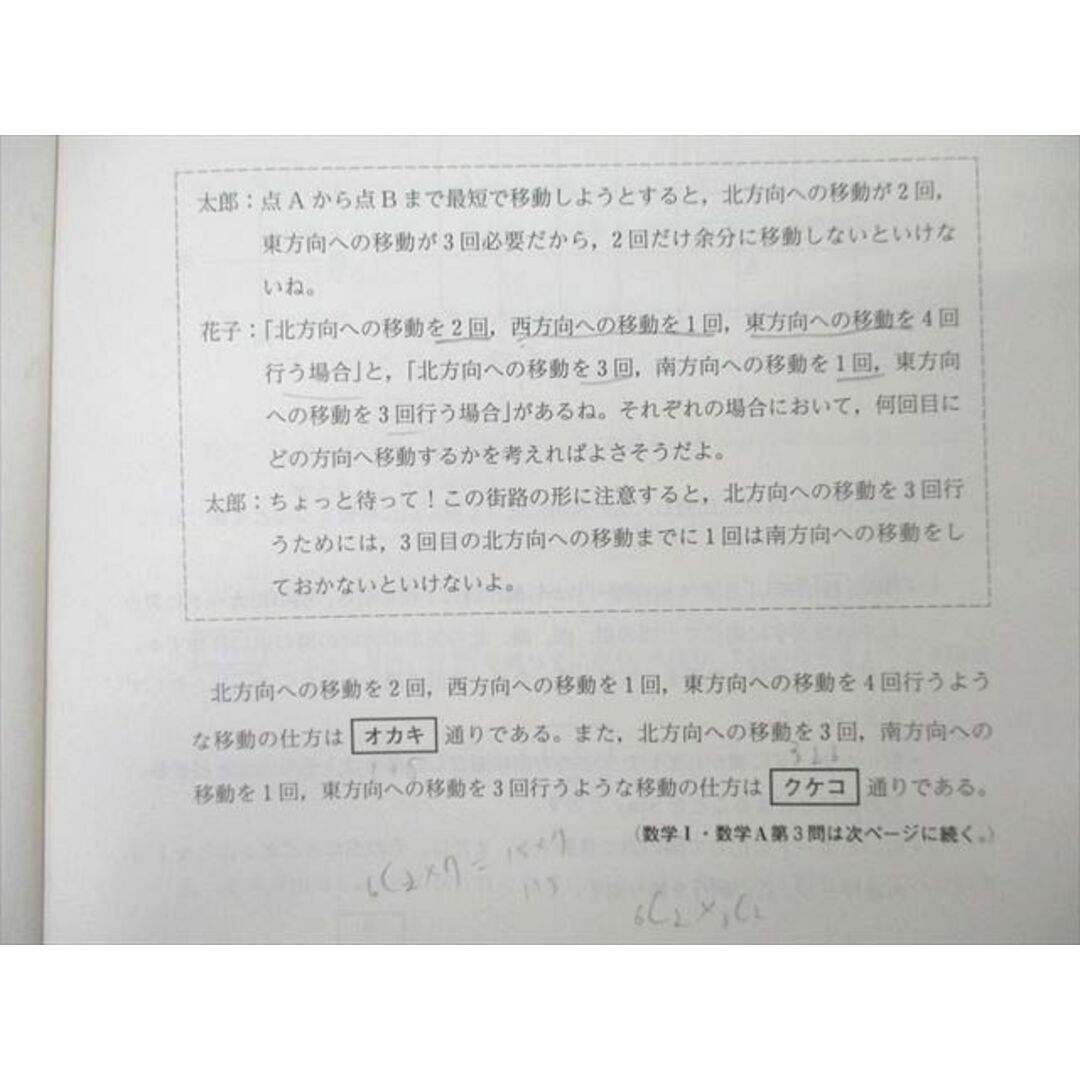 太郎：点Aから点Bまで最短で移動しようとすると，北方向への移動が2回，
東方向への移動が3回必要だから，2回だけ余分に移動しないといけな
いね。
花子：「北方向への移動を2回，西方向への移動を1回，東方向への移動を4回
行う場合」と，「北方向への移動を3回，南方向への移動を1回，東方向
への移動を3回行う場合」があるね。それぞれの場合において，何回目に
どの方向へ移動するかを考えればよさそうだよ。
太郎：ちょっと待って！この街路の形に注意すると，北方向への移動を3回行
うためには，3回目の北方向への移動までに1回は南方向への移動をし
ておかないといけないよ。
北方向への移動を2回，西方向への移動を1回，東方向への移動を4回行うよう
な移動の仕方は オカキ 通りである。また，北方向への移動を3回，南方向への
移動を1回，東方向への移動を3回行うような移動の仕方は クケコ 通りである。
(数学Ⅰ・数学A第3問は次ページに続く。)
6C2×7=15×7